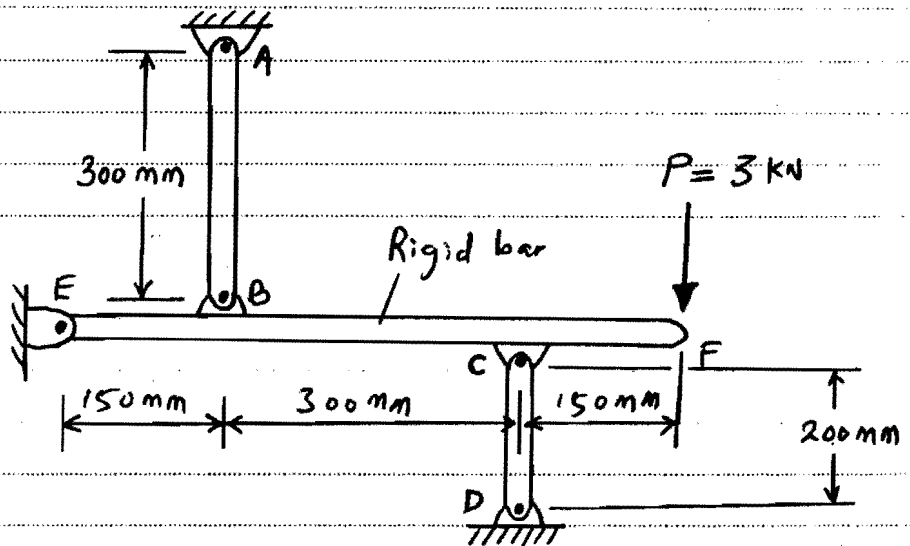 A
300 mm
P = 3 KN
Rigid bar
E
B
C
F
150 mm
300 mm
150 mm
200 mm
D